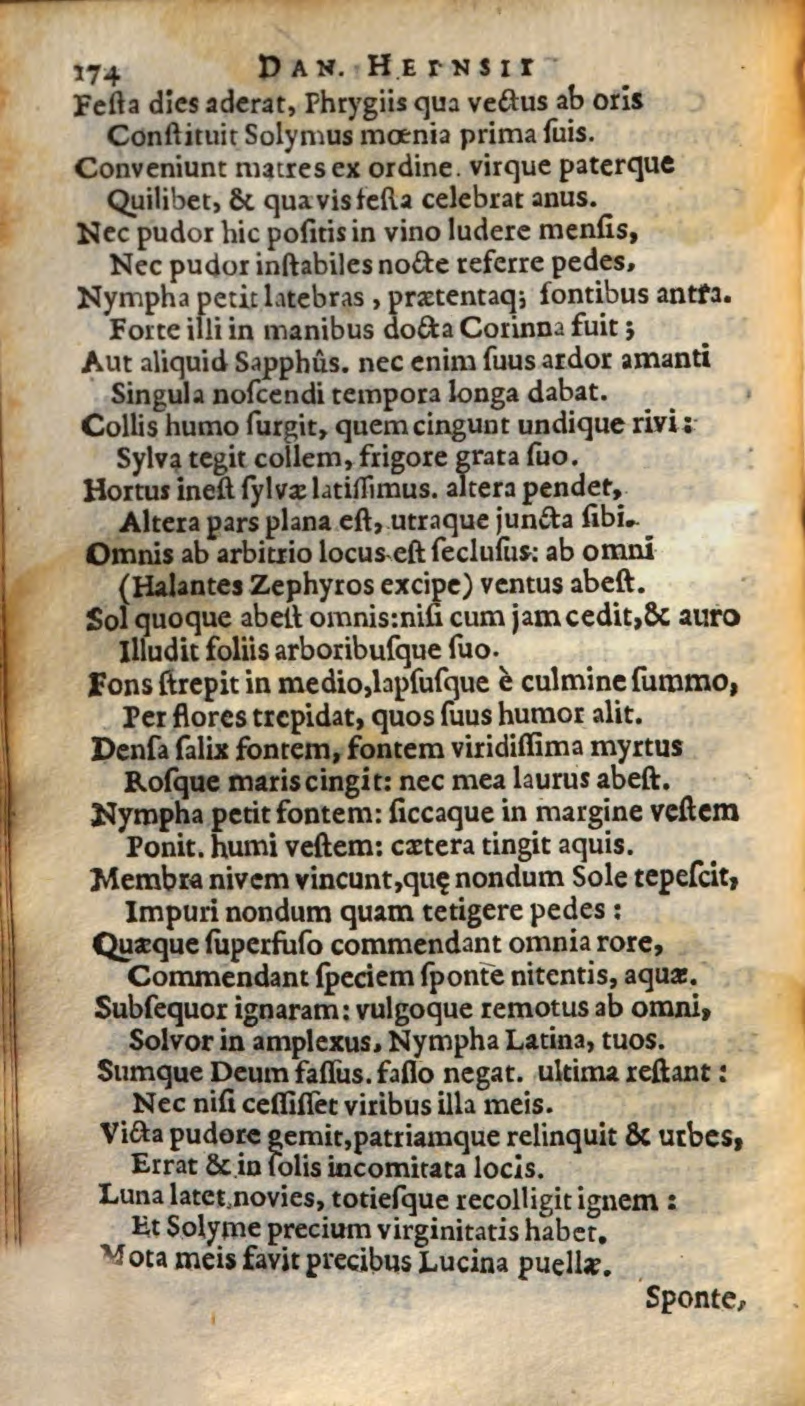 174 DAN. HEINSII
Feſta dies aderat, Phrygiis qua vectus ab oris
Conſtituit Solymus mœnia prima ſuis.
Conveniunt matres ex ordine. virque paterque
Quilibet, & quavis feſta celebrat anus.
Nec pudor hic poſitis in vino ludere menſis,
Nec pudor inſtabiles nocte referre pedes.
Nympha petit latebras, prætentaq; fontibus antra.
Forte illi in manibus docta Corinna fuit;
Aut aliquid Sapphûs. nec enim ſuus ardor amanti
Singula noſcendi tempora longa dabat.
Collis humo ſurgit, quem cingunt undique rivi:
Sylva tegit collem, frigore grata ſuo.
Hortus ineſt ſylvæ latiſſimus. altera pendet,
Altera pars plana eſt, utraque juncta ſibi.
Omnis ab arbitrio locus eſt ſecluſus: ab omni
(Halantes Zephyros excipe) ventus abeſt.
Sol quoque abeſt omnis: niſi cum jam cedit, & auro
Illudit foliis arboribuſque ſuo.
Fons ſtrepit in medio, lapſuſque è culmine ſummo,
Per flores trepidat, quos ſuus humor alit.
Denſa ſalix fontem, fontem viridiſſima myrtus
Roſque maris cingit: nec mea laurus abeſt.
Nympha petit fontem: ſiccaque in margine veſtem
Ponit. humi veſtem: cætera tingit aquis.
Membra nivem vincunt, quę nondum Sole tepeſcit,
Impuri nondum quam tetigere pedes:
Quæque ſuperfuſo commendant omnia rore,
Commendant ſpeciem ſponte nitentis, aquæ.
Subſequor ignaram: vulgoque remotus ab omni,
Solvor in amplexus, Nympha Latina, tuos.
Sumque Deum faſſus. faſſo negat. ultima reſtant:
Nec niſi ceſſiſſet viribus illa meis.
Victa pudore gemit, patriamque relinquit & urbes,
Errat & in ſolis incomitata locis.
Luna latet novies, totieſque recolligit ignem:
Et Solyme precium virginitatis habet.
Mota meis favit precibus Lucina puellæ.
Sponte,